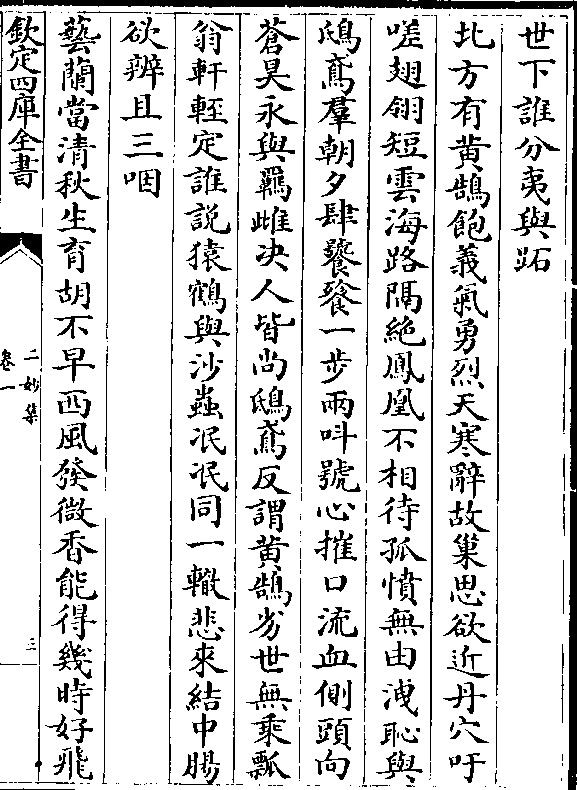 世下誰分夷與跖
北方有黄鵠飽義氣勇烈天寒辭故巢思欲近丹穴吁
嗟翅翎短雲海路隔絶鳳凰不相待孤憤無由洩恥與
鴟鳶羣朝夕肆饕餮一步兩呌號心摧口流血側頭向
蒼昊永與羈雌决人皆尚鴟鳶反謂黄鵠劣世無乘瓢
翁軒輊定誰説猿鶴與沙蟲泯泯同一轍悲來結中腸
欲辨且三咽
藝蘭當清秋生育胡不早西風發微香能得幾時好飛
欽定四庫全書
二妙集
卷一
三